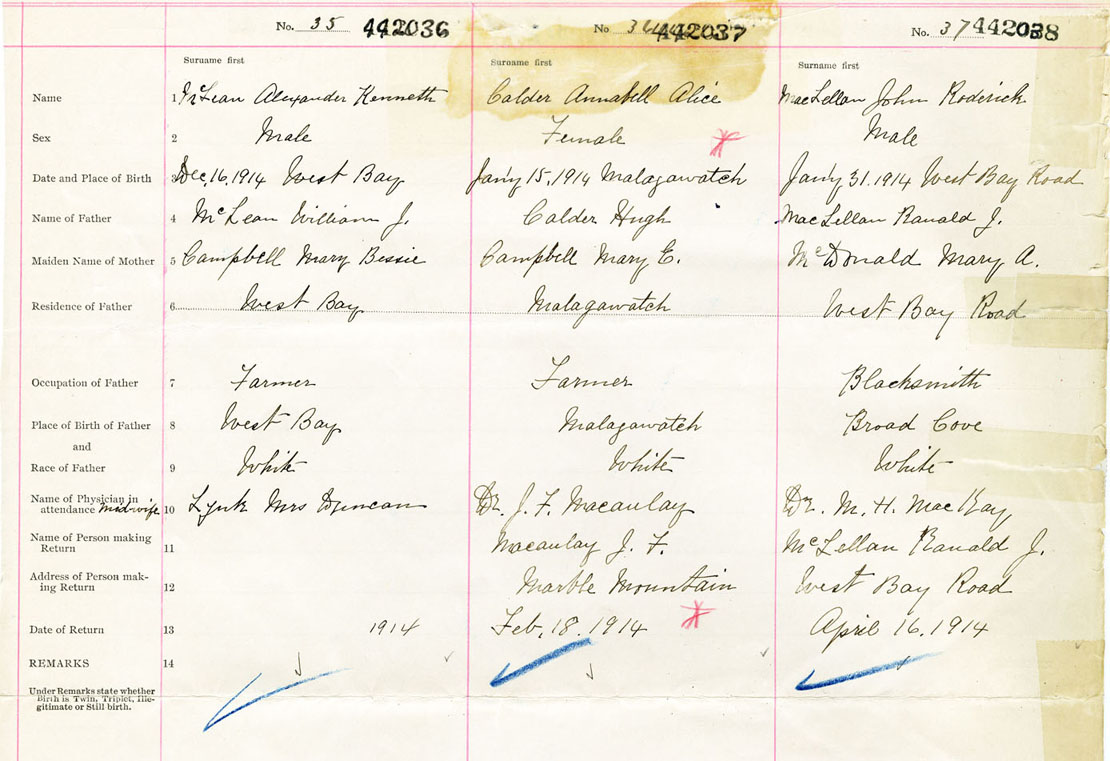 No. 35 442036 No 36 442037 No. 37 442038
Surname first Surname first Surname first
Name 1 McLean Alexander Kenneth Calder Annabell Alice MacLellan John Roderick
Sex 2 Male Female Male
Date and Place of Birth 3 Dec, 16, 1914 West Bay Jan'y 15, 1914 Malagawatch Jan'y 31. 1914 West Bay Road
Name of Father 4 McLean William J. Calder Hugh MacLellan Ranald J.
Maiden Name of Mother 5 Campbell Mary Bessie Campbell Mary E. McDonald Mary A.
Residence of Father 6 West Bay Malagawatch West Bay Road
Occupation of Father 7 Farmer Farmer Blacksmith
Place of Birth of Father 8 West Bay Malagawatch Broad Cove
and
Race of Father 9 White White White
Name of Physician in
attendance Midwife 10 Lynk Mrs Duncan Dr. J. F. Macaulay Dr. M. H. MacKay
Name of Person making
Return 11 Macaulay J. F. McLellan Ranald J.
Address of Person mak-
ing Return 12 Marble Mountain West Bay Road
Date of Return 13 1914 Feb, 18. 1914 April 16. 1914
REMARKS 14
Under Remarks state whether
Birth is Twin, Triplet, Ille-
gitimate or Still birth.